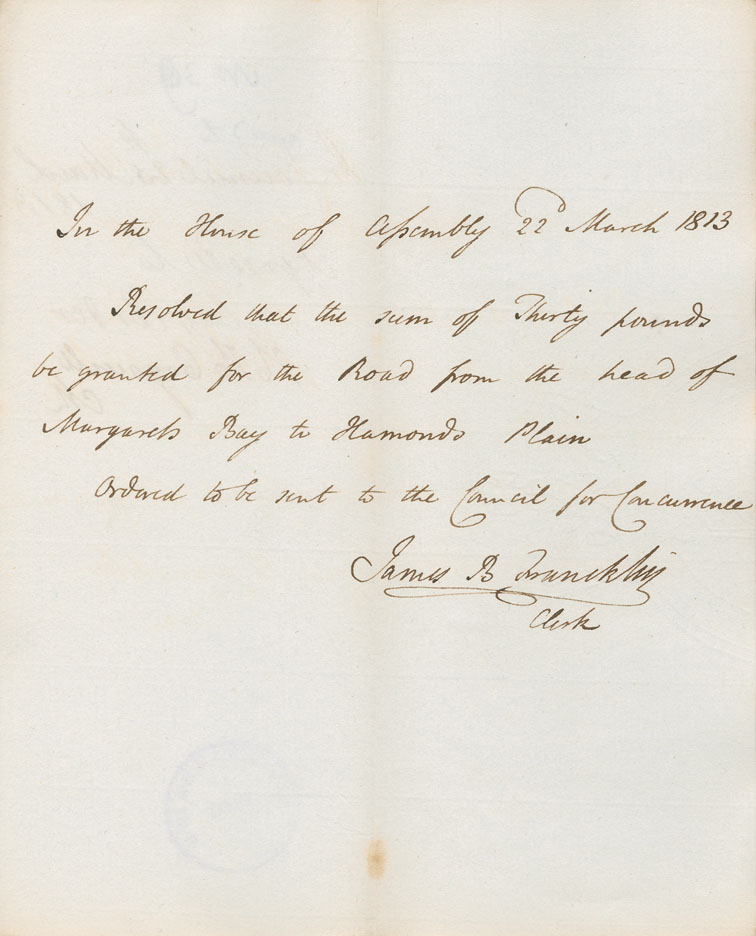 In the House of Assembly 22d March 1813
Resolved that the sum of Thirty pounds
be granted for the Road from the head of
Margarets Bay to Hamonds Plain
Ordered to be sent to the Council for Concurrence
James B Francklin
Clerk